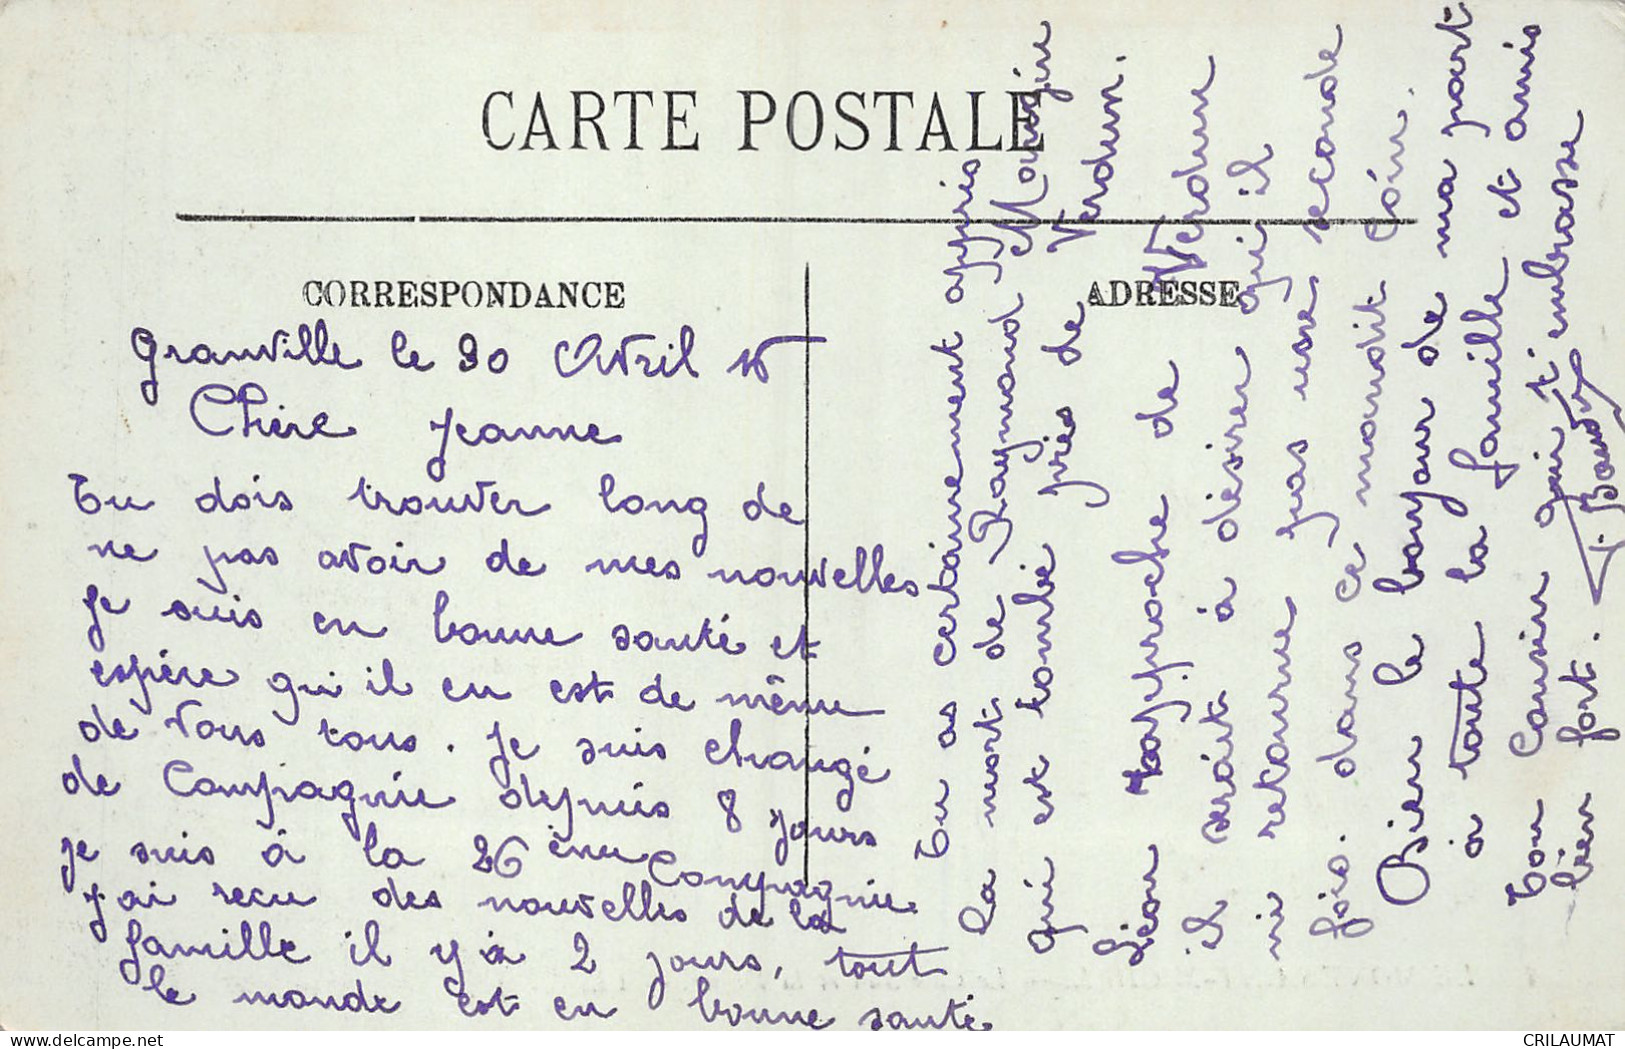 CARTE POSTALE
CORRESPONDANCE
ADRESSE
Granville le 30 Avril 16
Chère Jeanne
Tu dois trouver long de
ne pas avoir de mes nouvelles
Je suis en bonne santé et
espère qui il en est de même
de vous tous. Je suis changé
de Compagnie depuis 8 jours
je suis à la 26 ème Compagnie
j'ai recu des nouvelles de la
famille il y a 2 jours, tout
le monde est en bonne santé
Tu as certainement appris
la mort de Raymond Mougin
qui est tombé près de Verdun.
Léon rapproche de Verdun
il serait à désirer qui il
ni retourne pas une seconde
fois dans ce mandit Coin.
Bien le bonjour de ma part
à toute la famille et amis
Ton Cousin qui t'embrasse
bien fort.
www.delcampe.net
CRILAUMAT